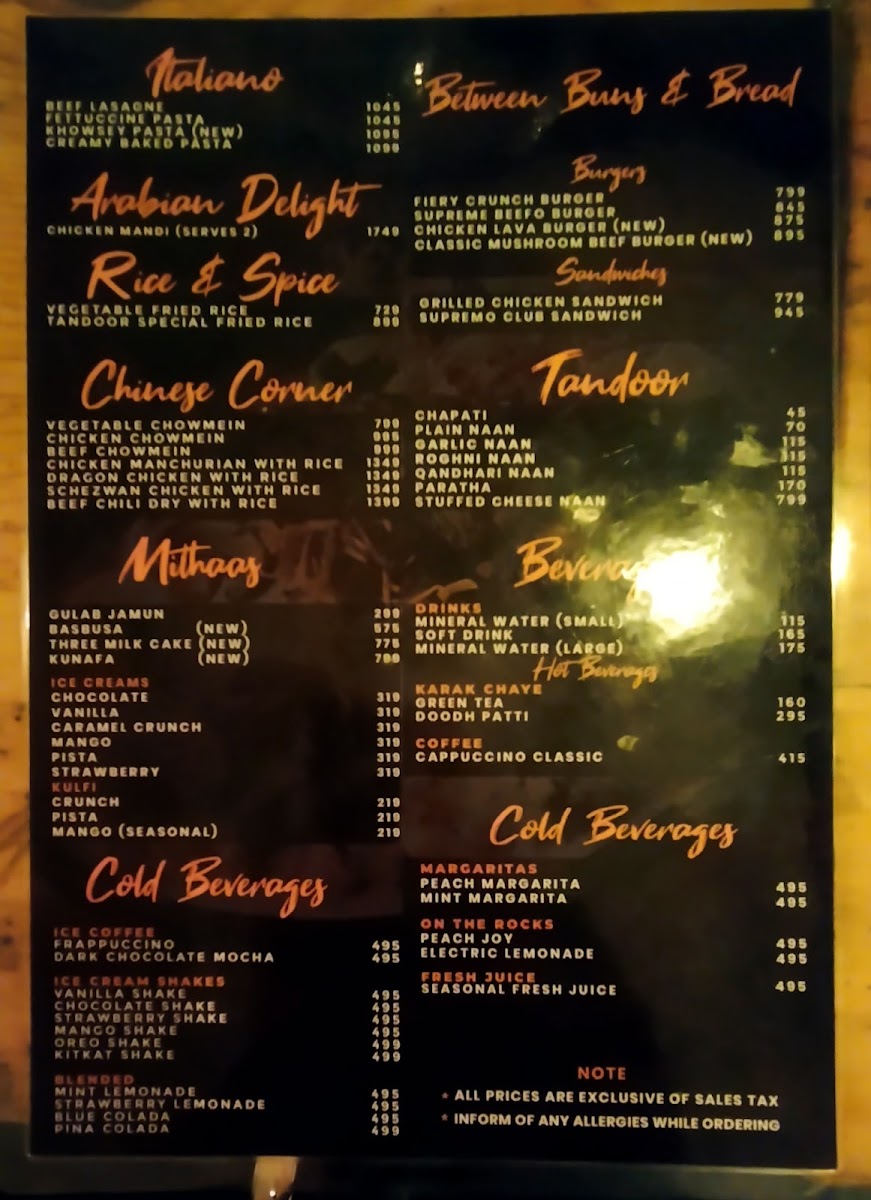 Italiano
BEEF LASAGNE 1045
FETTUCCINE PASTA 1045
KHOWSEY PASTA (NEW) 1095
CREAMY BAKED PASTA 1099
Arabian Delight
CHICKEN MANDI (SERVES 2) 1749
Rice & Spice
VEGETABLE FRIED RICE 729
TANDOOR SPECIAL FRIED RICE 899
Chinese Corner
VEGETABLE CHOWMEIN 799
CHICKEN CHOWMEIN 995
BEEF CHOWMEIN 999
CHICKEN MANCHURIAN WITH RICE 1349
DRAGON CHICKEN WITH RICE 1349
SCHEZWAN CHICKEN WITH RICE 1349
BEEF CHILI DRY WITH RICE 1399
Mithaas
GULAB JAMUN 299
BASBUSA (NEW) 575
THREE MILK CAKE (NEW) 775
KUNAFA (NEW) 799
ICE CREAMS
CHOCOLATE 319
VANILLA 319
CARAMEL CRUNCH 319
MANGO 319
PISTA 319
STRAWBERRY 319
KULFI
CRUNCH 219
PISTA 219
MANGO (SEASONAL) 219
Cold Beverages
ICE COFFEE
FRAPPUCCINO 495
DARK CHOCOLATE MOCHA 495
ICE CREAM SHAKES
VANILLA SHAKE 495
CHOCOLATE SHAKE 495
STRAWBERRY SHAKE 495
MANGO SHAKE 495
OREO SHAKE 499
KITKAT SHAKE 499
BLENDED
MINT LEMONADE 495
STRAWBERRY LEMONADE 495
BLUE COLADA 495
PINA COLADA 499
Between Buns & Bread
Burgers
FIERY CRUNCH BURGER 799
SUPREME BEEFO BURGER 845
CHICKEN LAVA BURGER (NEW) 875
CLASSIC MUSHROOM BEEF BURGER (NEW) 895
Sandwiches
GRILLED CHICKEN SANDWICH 779
SUPREMO CLUB SANDWICH 945
Tandoor
CHAPATI 45
PLAIN NAAN 70
GARLIC NAAN 115
ROGHNI NAAN 115
QANDHARI NAAN 115
PARATHA 170
STUFFED CHEESE NAAN 799
DRINKS
MINERAL WATER (SMALL) 115
SOFT DRINK 165
MINERAL WATER (LARGE) 175
Hot Beverages
KARAK CHAYE
GREEN TEA 160
DOODH PATTI 295
COFFEE
CAPPUCCINO CLASSIC 415
Cold Beverages
MARGARITAS
PEACH MARGARITA 495
MINT MARGARITA 495
ON THE ROCKS
PEACH JOY 495
ELECTRIC LEMONADE 495
FRESH JUICE
SEASONAL FRESH JUICE 495
NOTE
* ALL PRICES ARE EXCLUSIVE OF SALES TAX
* INFORM OF ANY ALLERGIES WHILE ORDERING